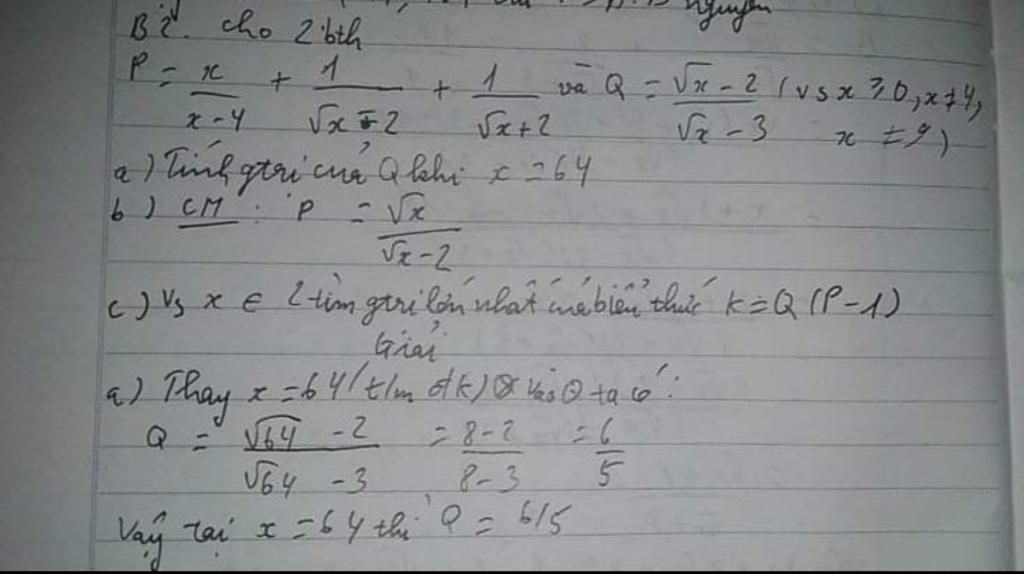 nguyên
B2. cho 2 bth
P = x/(x-4) + 1/(√x-2) + 1/(√x+2) và Q = (√x-2)/(√x-3) (vs x ≥ 0, x ≠ 4,
x ≠ 9)
a) Tính gtrị của Q khi x = 64
b) CM : P = √x/(√x-2)
c) Vs x ∈ Z tìm gtrị lớn nhất của biểu thức K = Q (P-1)
Giải
a) Thay x = 64 (t/m đk) vào Q ta có :
Q = (√64 - 2)/(√64 - 3) = (8-2)/(8-3) = 6/5
Vậy tại x = 64 thì Q = 6/5